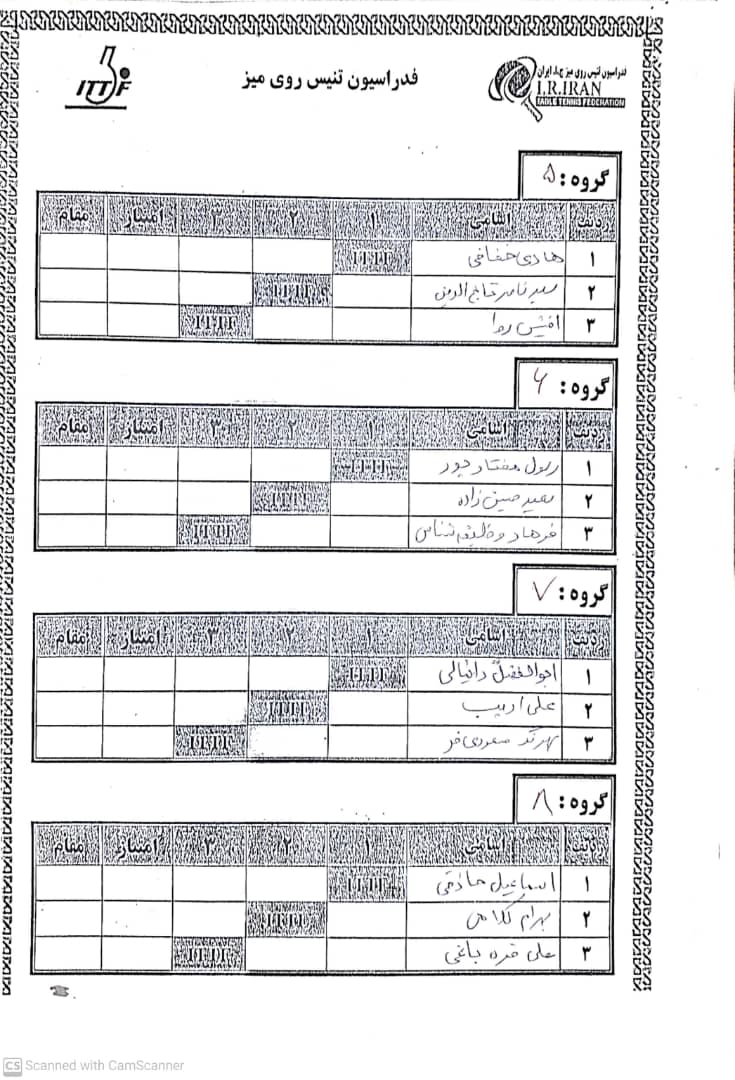 ITTF
فدراسیون تنیس روی میز
فدراسیون تنیس روی میز ج.ا. ایران
I.R.IRAN
TABLE TENNIS FEDERATION
گروه: ۵
ردیف اسامی ۱ ۲ ۳ امتیاز مقام
۱ هادی خفافی ITTF
۲ سید ناصر تاج الدین ITTF
۳ افشین روا ITTF
گروه: ۶
ردیف اسامی ۱ ۲ ۳ امتیاز مقام
۱ رسول مختارپور ITTF
۲ سعید حسین زاده ITTF
۳ فرهاد وظیفه شناس ITTF
گروه: ۷
ردیف اسامی ۱ ۲ ۳ امتیاز مقام
۱ ابوالفضل دانیالی ITTF
۲ علی ادیب ITTF
۳ سعودی فر ITTF
گروه: ۸
ردیف اسامی ۱ ۲ ۳ امتیاز مقام
۱ اسماعیل حاذقی ITTF
۲ بهرام کلامی ITTF
۳ علی قره باغی ITTF
CS Scanned with CamScanner